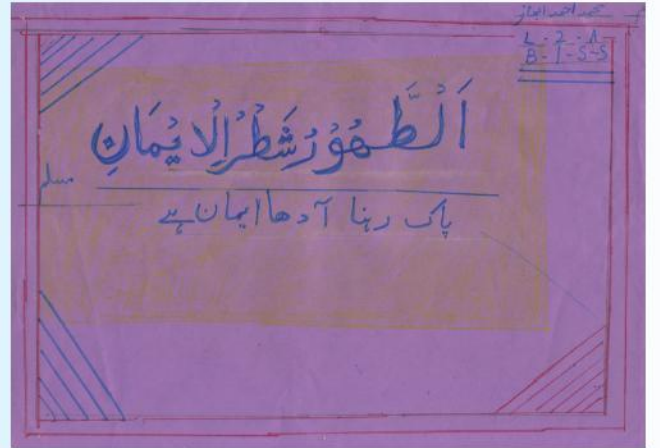 محمد احمد اعجاز
L-2-A
B-I-S-S
اَلطَّهُوْرُ شَطْرُ الْاِيْمَانِ
مسلم
پاک رہنا آدھا ایمان ہے